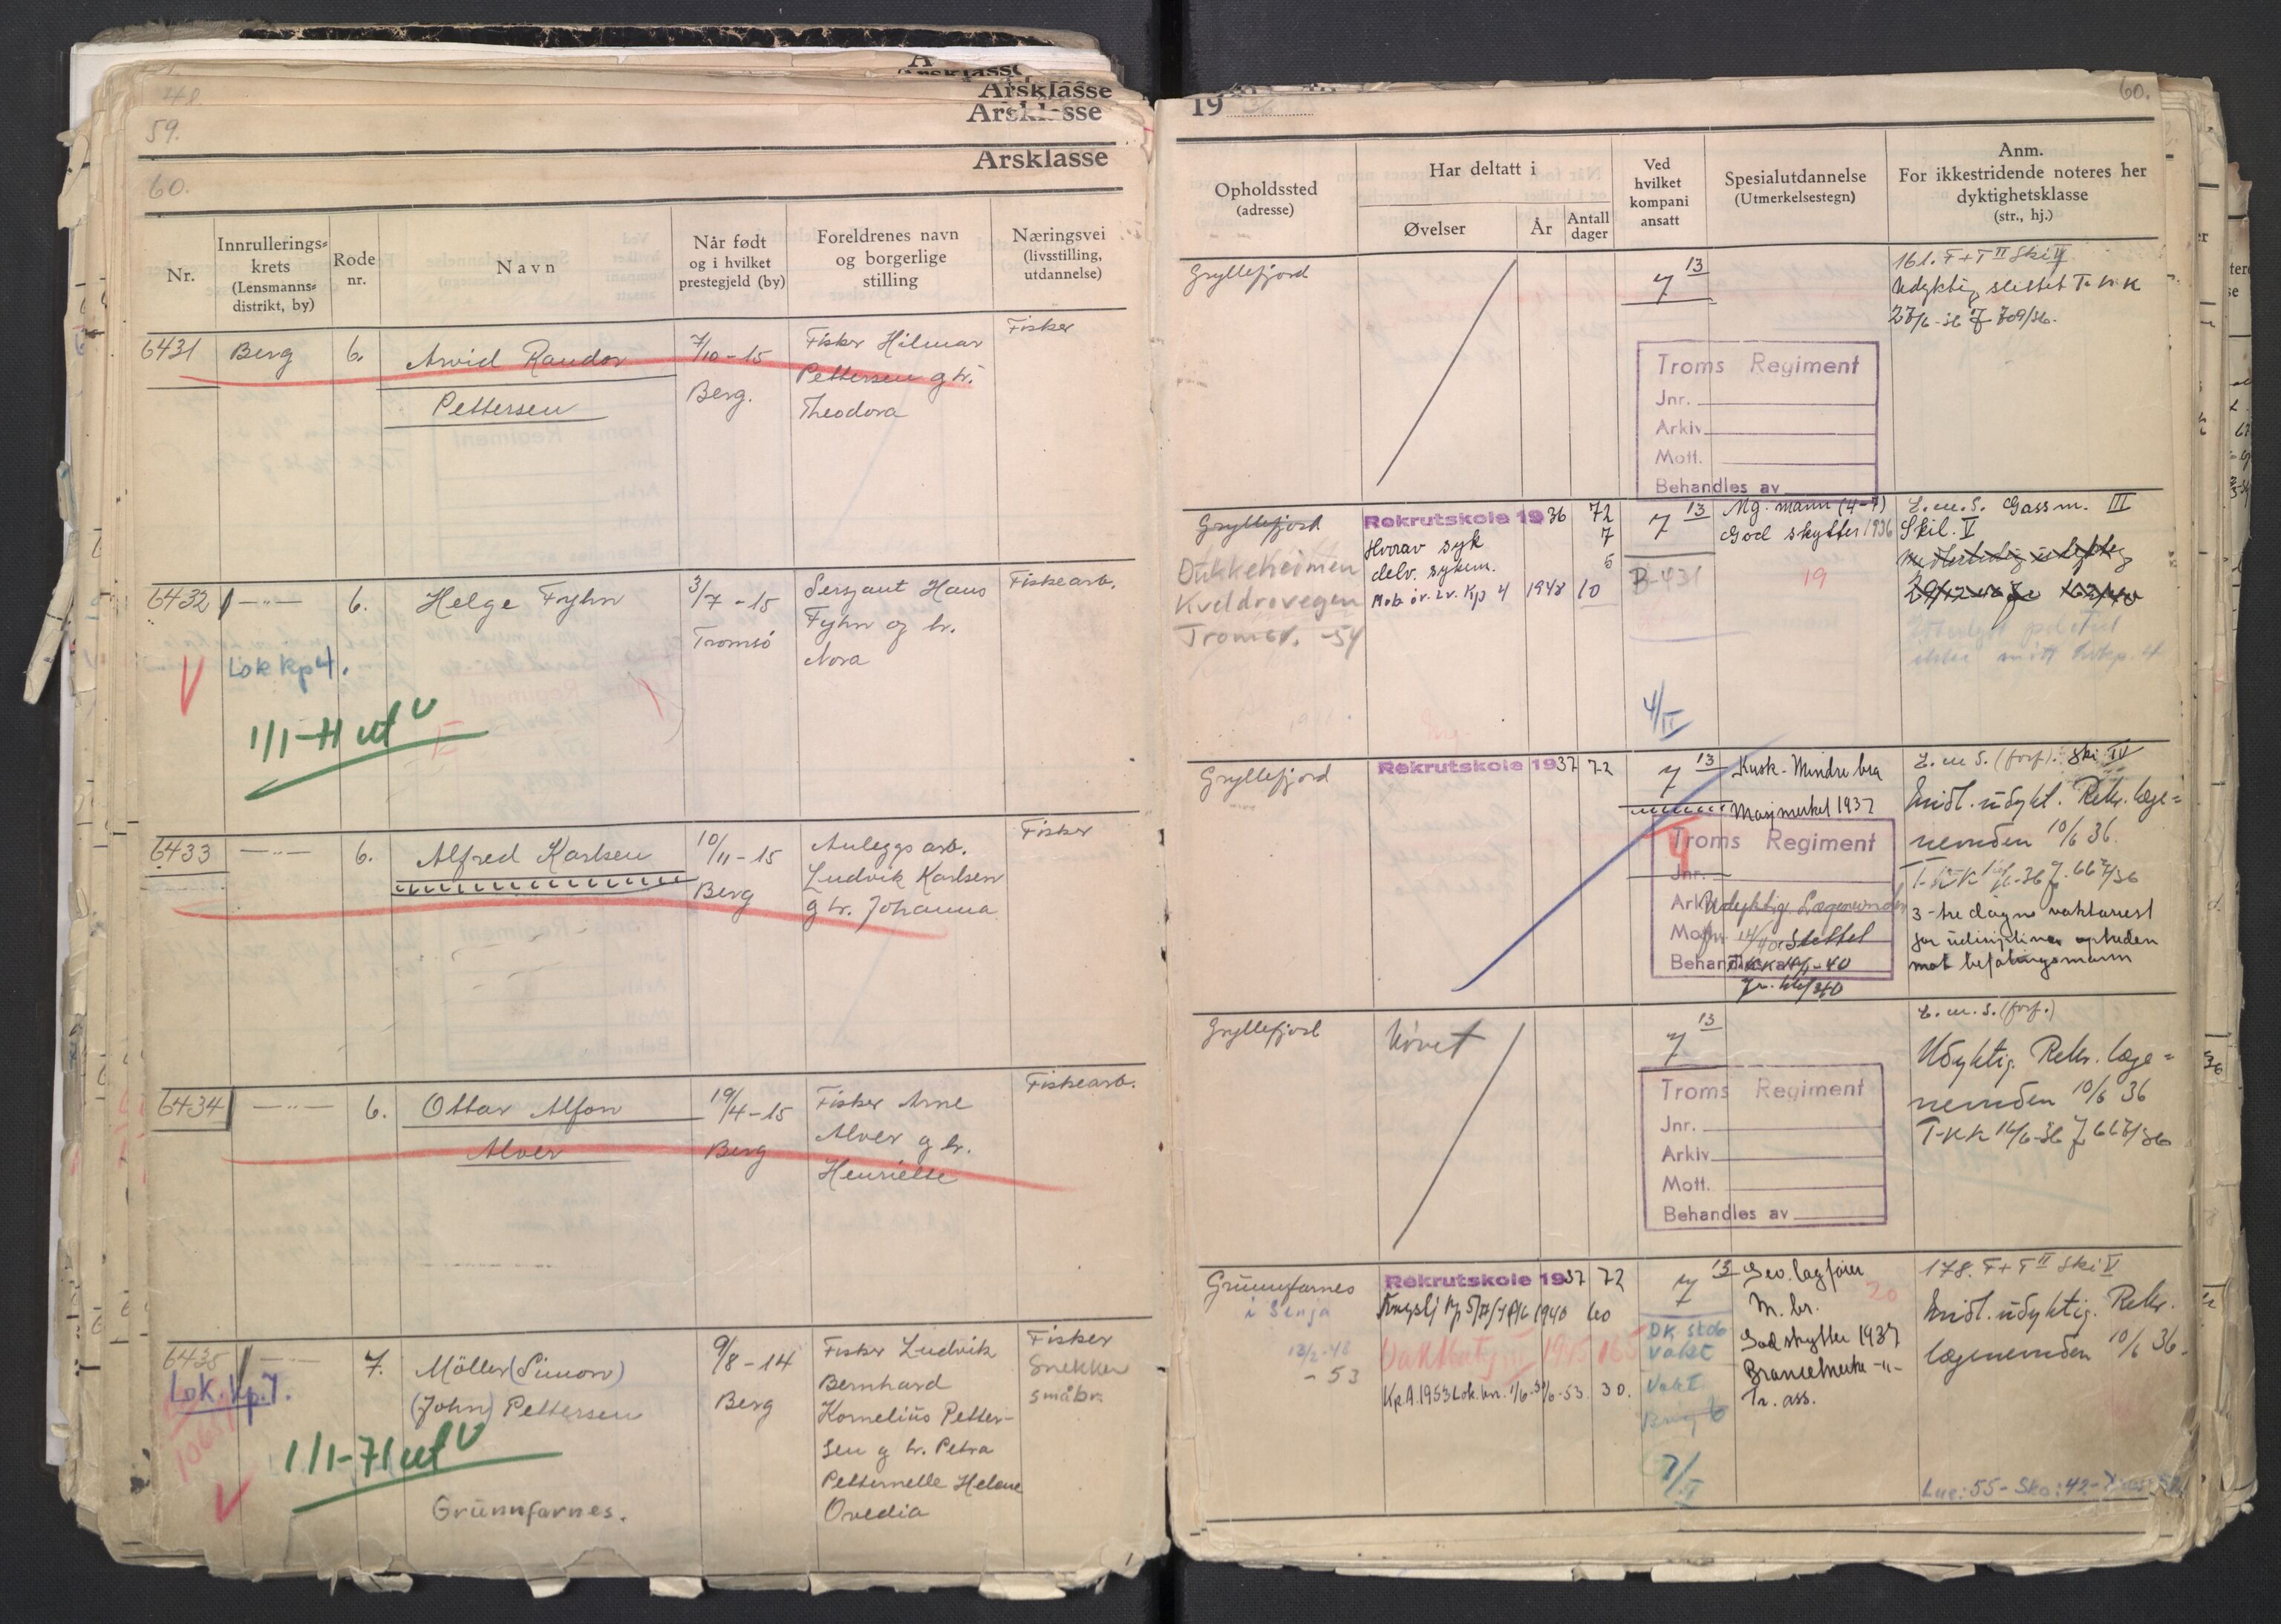 48.
59.
Årsklasse
Årsklasse
Årsklasse
60.
Nr.
Innrullerings-
krets
(Lensmanns-
distrikt, by)
Rode
nr.
Navn
Når født
og i hvilket
prestegjeld (by)
Foreldrenes navn
og borgerlige
stilling
Næringsvei
(livsstilling,
utdannelse)
6431 Berg 6. Arvid Randor
Pettersen
7/10-15
Berg.
Fisker Hilmar
Pettersen g hr.
Theodora
Fisker
6432 -"- 6. Helge Fyhn
3/7-15
Tromsö
Sersjant Hans
Fyhn og hr.
Nora
Fiskearb.
Lok kp 4.
V
6433 -"- 6. Alfred Karlsen
10/11-15
Berg
Anleggsarb.
Ludvik Karlsen
g hr. Johanna
Fisker
6434 -"- 6. Ottar Alfon
Alver
19/4-15
Berg
Fisker Arne
Alver g hr.
Henriette
Fiskearb.
6435 -"- 7. Möller (Simon)
(John) Pettersen
9/8-14
Berg
Fisker Ludvik
Bernhard
Kornelius Petter-
sen g hr. Petra
Petternelle Helene
Ovedia
Fisker
Snekker
småbr.
Lok. kp. 7.
1/1-71 utf
V
Grunnfarnes.
19 36
60.
Opholdssted
(adresse)
Har deltatt i
Øvelser
År
Antall
dager
Ved
hvilket
kompani
ansatt
Spesialutdannelse
(Utmerkelsestegn)
Anm.
For ikkestridende noteres her
dyktighetsklasse
(str., hj.)
Gryllefjord
7 13
161. F+T II Ski V
Udyktig slettet T.K.K
Troms Regiment
Jnr.
Arkiv
Mott.
Behandles av
Gryllefjord
Kveldrovegen
Tromsø. -54
Rekrutskole 1936 72
Hvorav syk 7
delv. sykm. 6
Mob.øv. Lv. Kp 4 1948 10
7 13
B-431
4/II
Mg. mann (4-7)
God skytter 1936
19
L.m.S. Gassm. III
Skil. V
Gryllefjord
Rekrutskole 1937 72
7 13
Kusk - Mindre bra
Marsjmerket 1937
Troms Regiment
Jnr.
Udyktig Lægenemnden
Slettet
L.m.S. (forf). Ski IV
Midl. udykt. Rekr. læge-
nemnden 10/6 36.
3-tre døgns vaktarrest
for udisiplinær optreden
mot befalingsmann
Gryllefjord
Uøvet
7 13
Troms Regiment
Jnr.
Arkiv
Mott.
Behandles av
L.m.S. (forf.)
Udyktig. Rekr. læge-
nemnden 10/6 36
T-KK 14/6-36 J 667/36
Grunnfarnes
i Senja
-53
Rekrutskole 1937 72
1940 60
1945 165
Kp.A. 1953 Lok. vn. 1/6-30/6-53. 30.
7 13
DK Stab
Vakt
Vakt
7/II
Gev. lagfører
20
M. br.
God skytter 1937
Tr. ass.
178. F+T II Ski V
Midl. udyktig. Rekr.
lægenemnden 10/6 36.
Lue: 55 - Sko: 42 -